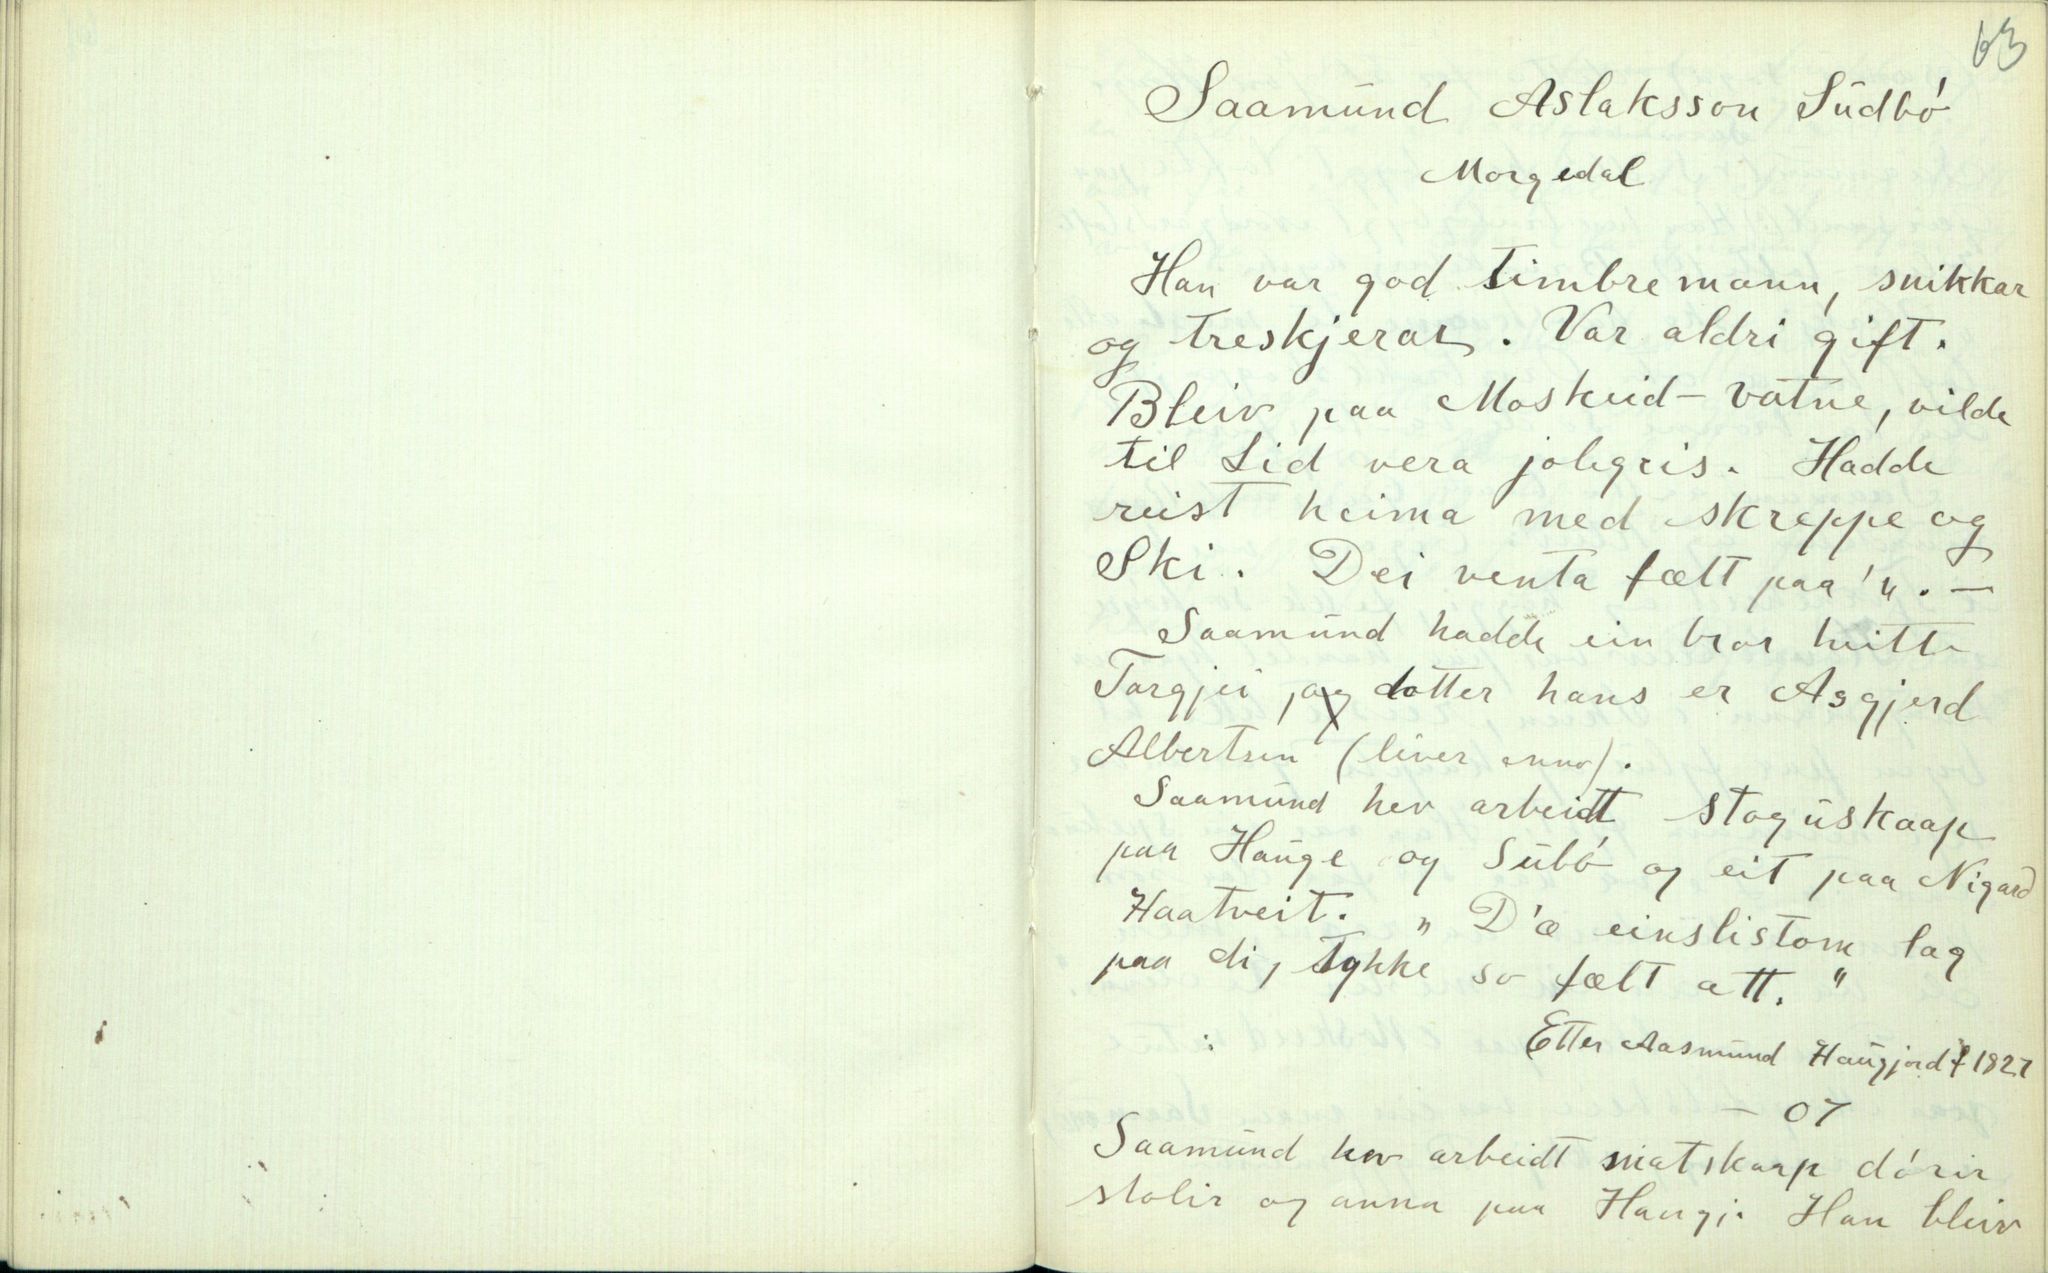 63
Saamund Aslaksson Sudbó
Morgedal
Han var god timbremann, snikkar
og treskjerar. Var aldri gift.
Bleiv paa Moskeid-vatne, vilde
til Lid vera jolegris. Hadde
reist heima med skreppe og
Ski. Dei venta fælt paa'n. —
Saamund hadde ein bror heitte
Torgjei, og dotter hans er Asgjerd
Albertsen (liver enno).
Saamund hev arbeidt stoguskaap
paa Hauge og Subó og eit paa Nigard
Haatveit. „D'æ einslistom lag
paa di, tykke so fælt att."
Etter Aasmund Haugjord f 1827
— 07
Saamund hev arbeidt matskaap dórir
stolir og anna paa Haugj. Han bleiv